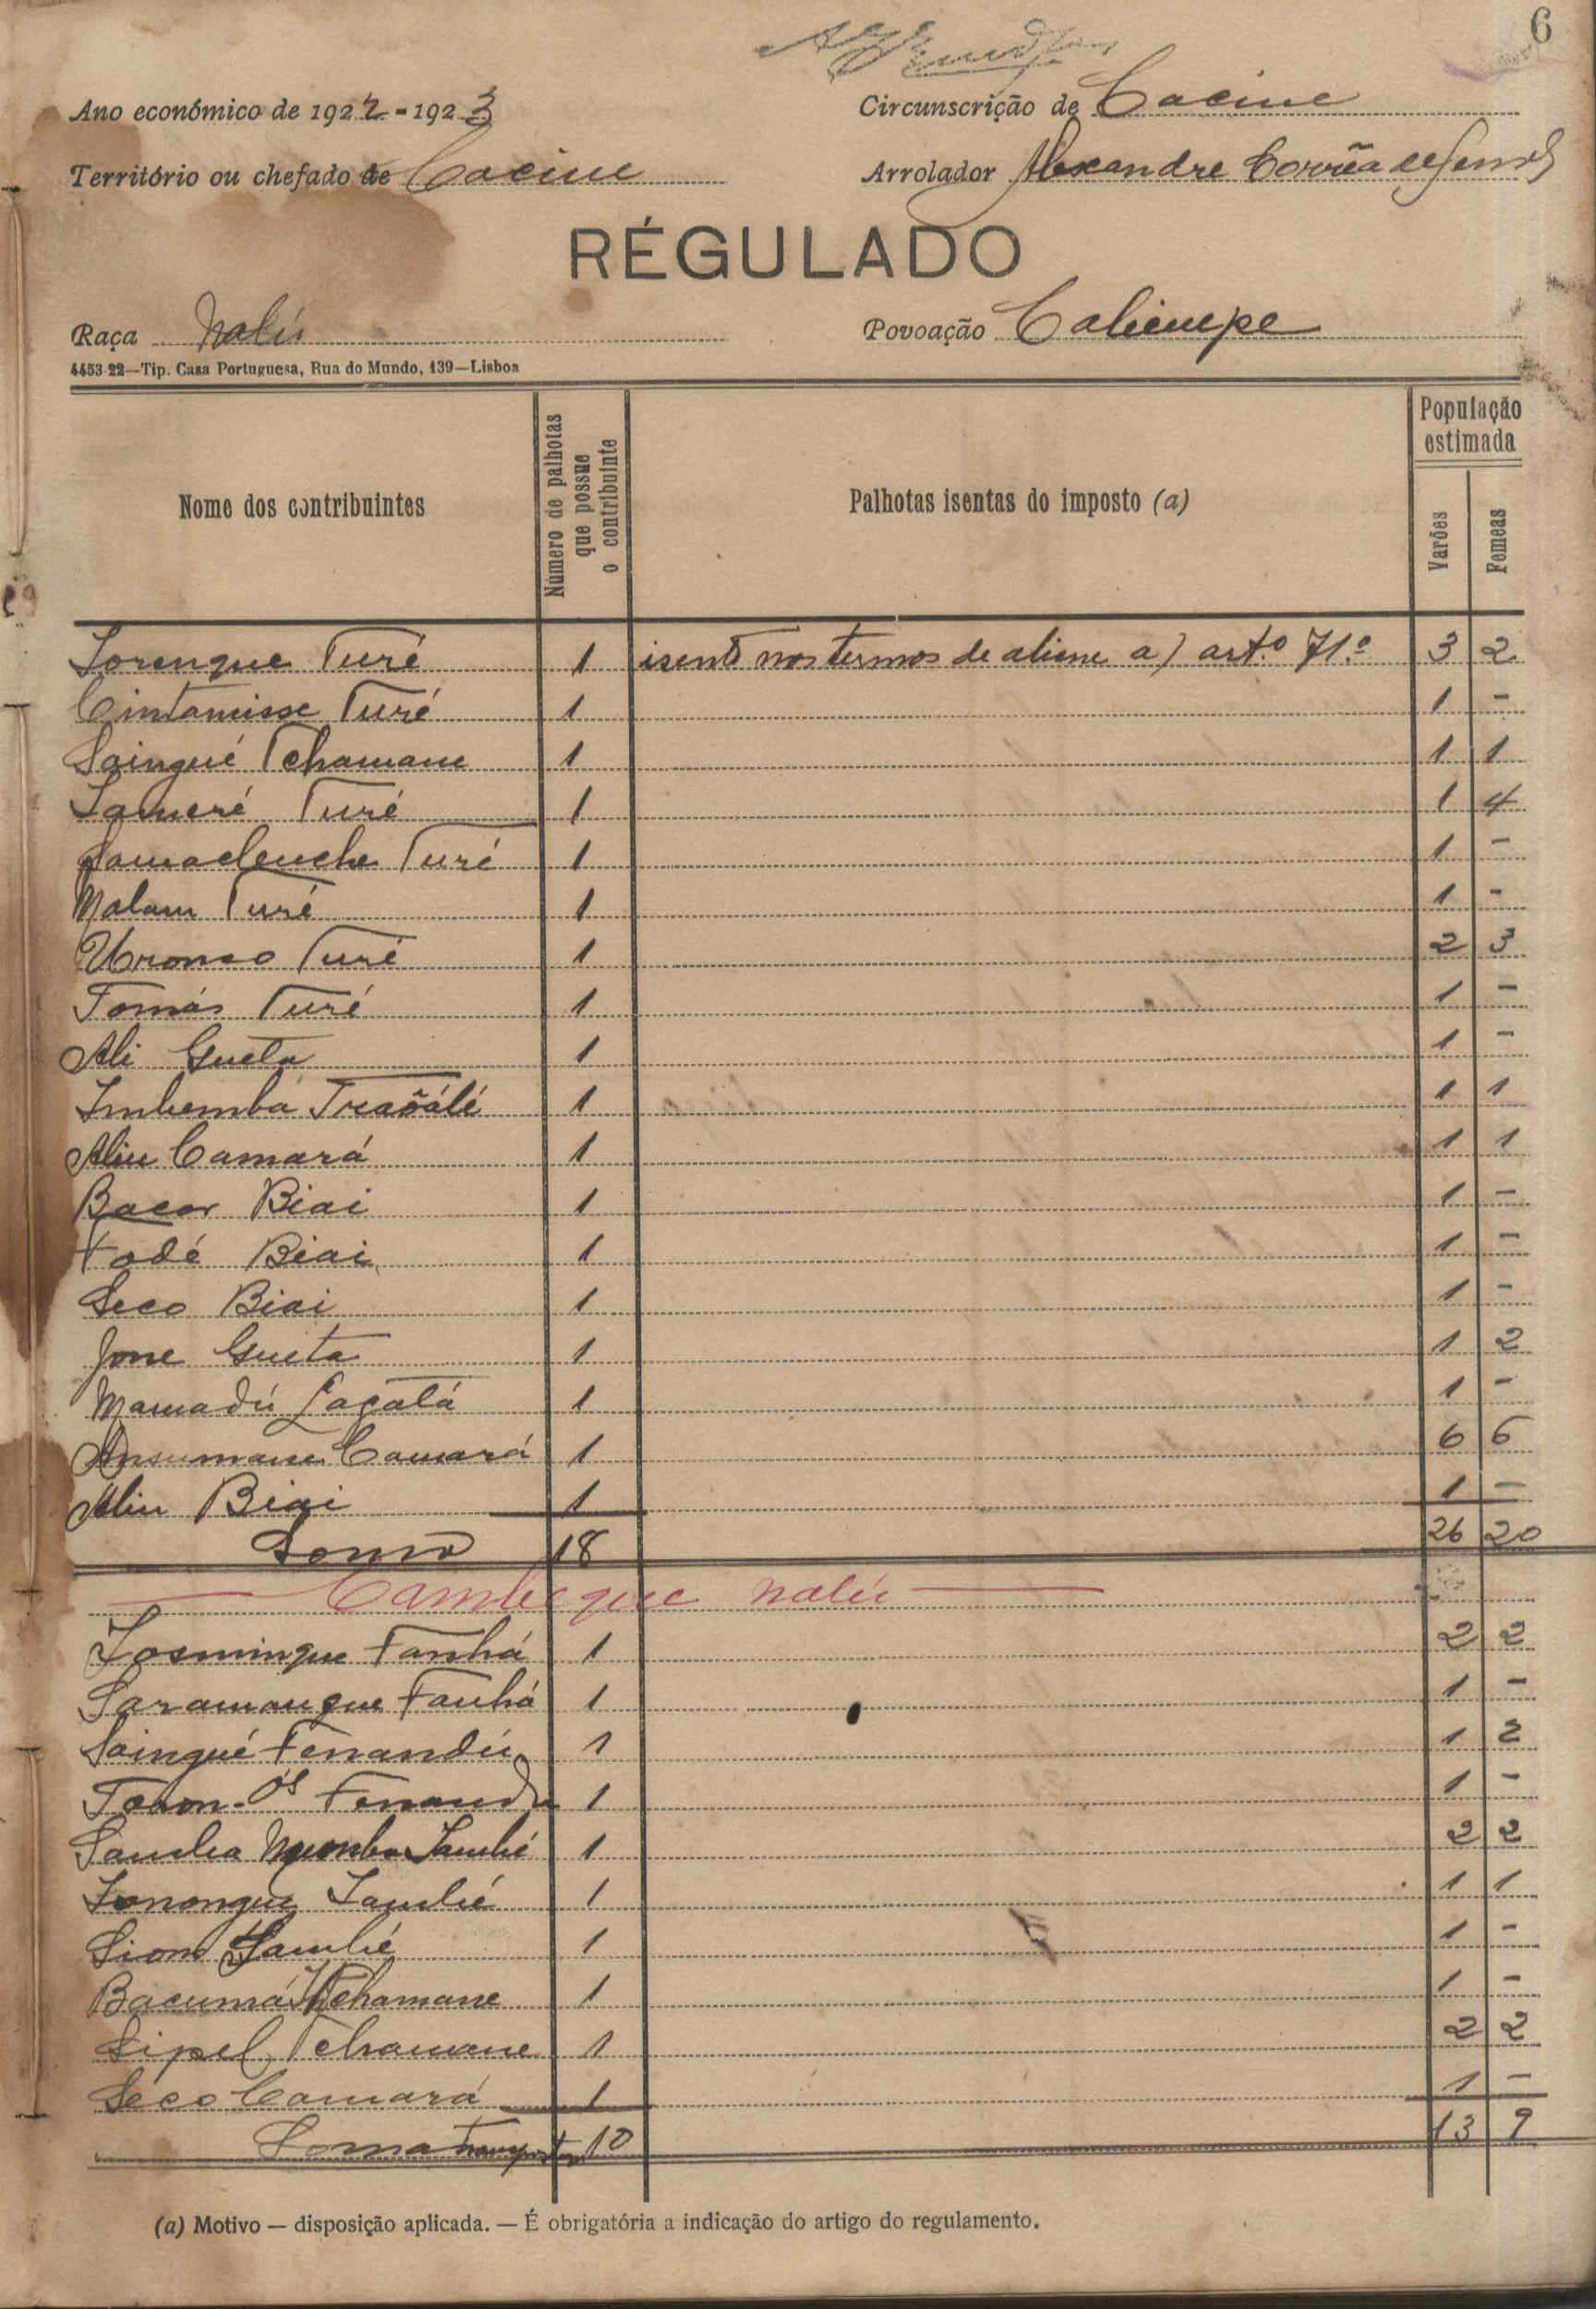 6
Ano económico de 1922-1923 Circunscrição de Cacine
Território ou chefado de Cacine Arrolador Alexandre Corrêa de
RÉGULADO
Raça Nalú Povoação
4453-22—Tip. Casa Portuguesa, Rua do Mundo, 139—Lisboa
Nome dos contribuintes
Número de palhotas que possue o contribuinte
Palhotas isentas do imposto (a)
População estimada
Varões Femeas
Lorenque Turé 1 isento nos termos de aliene a) art.º 71.º 3 2
Cintamisse Turé 1 1 -
Saingué Tchamane 1 1 1
Lameré Turé 1 1 4
Turé 1 1 -
Malam Turé 1 1 -
Uronso Turé 1 2 3
Tomás Turé 1 1 -
Ali Gueta 1 1 -
Imbemba Traoálé 1 1 1
Aliu Camará 1 1 1
Bacar Biai 1 1 -
Fodé Biai 1 1 -
Seco Biai 1 1 -
Jone Gueta 1 1 2
Mamadú 1 1 -
Ansumane Camará 1 6 6
Aliu Biai 1 1 -
Soma 18 26 20
Cambeque Nalú
Losmingue Fanhá 1 2 2
Saramangue Fanhá 1 1 -
Saingué Fernandú 1 1 2
1 1 -
Samba Lambé 1 2 2
Lambé 1 1 1
Lambé 1 1 -
Bacumá Tchamane 1 1 -
Sipel Tchamane 1 2 2
Séco Camará 1 1 -
Soma 10 13 9
(a) Motivo — disposição aplicada. — É obrigatória a indicação do artigo do regulamento.